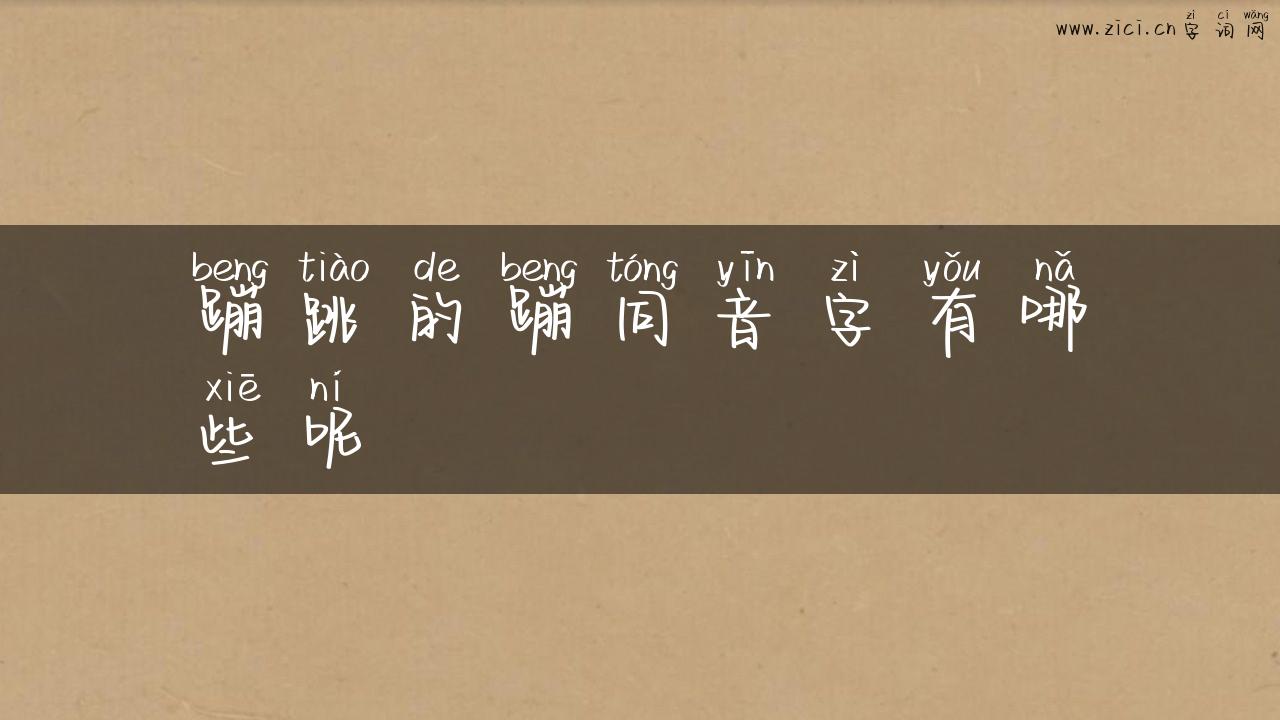 www.zici.cn zì cí wǎng
字词网
beng tiào de beng tóng yīn zì yǒu nǎ
蹦跳的蹦同音字有哪
xiē ní
些呢